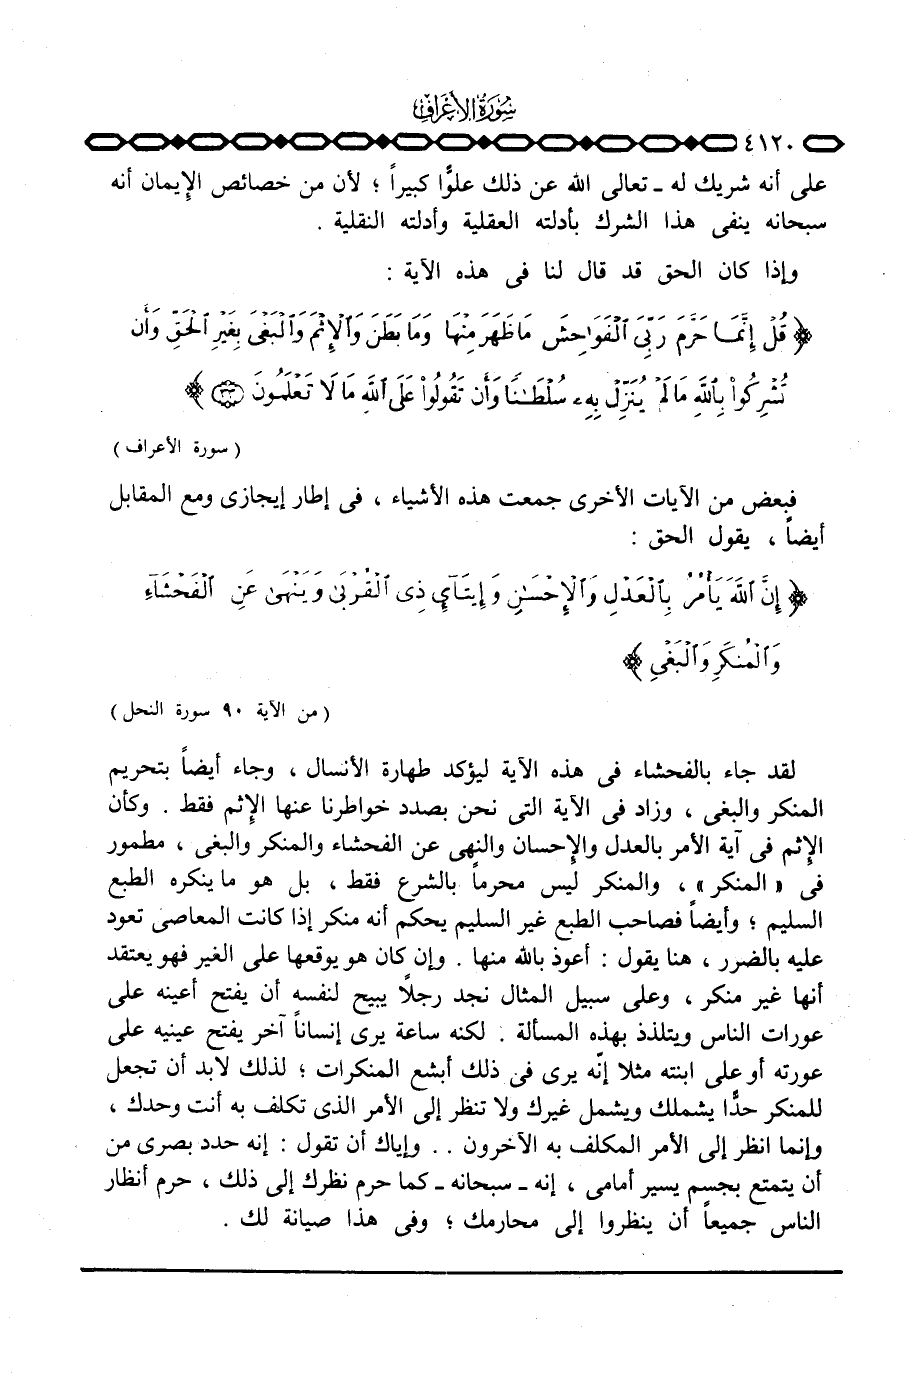 سُورَةُ الأَعْرَافِ
٤١٢٠
على أنه شريك له ـ تعالى الله عن ذلك علوًّا كبيراً ؛ لأن من خصائص الإيمان أنه
سبحانه ينفى هذا الشرك بأدلته العقلية وأدلته النقلية .
وإذا كان الحق قد قال لنا فى هذه الآية :
﴿ قُلْ إِنَّمَا حَرَّمَ رَبِّىَ ٱلْفَوَٰحِشَ مَا ظَهَرَ مِنْهَا وَمَا بَطَنَ وَٱلْإِثْمَ وَٱلْبَغْىَ بِغَيْرِ ٱلْحَقِّ وَأَن
تُشْرِكُوا۟ بِٱللَّهِ مَا لَمْ يُنَزِّلْ بِهِۦ سُلْطَٰنًا وَأَن تَقُولُوا۟ عَلَى ٱللَّهِ مَا لَا تَعْلَمُونَ ۝٣٣ ﴾
( سورة الأعراف )
فبعض من الآيات الأخرى جمعت هذه الأشياء ، فى إطار إيجازى ومع المقابل
أيضاً ، يقول الحق :
﴿ إِنَّ ٱللَّهَ يَأْمُرُ بِٱلْعَدْلِ وَٱلْإِحْسَٰنِ وَإِيتَآئِ ذِى ٱلْقُرْبَىٰ وَيَنْهَىٰ عَنِ ٱلْفَحْشَآءِ
وَٱلْمُنكَرِ وَٱلْبَغْىِ ﴾
( من الآية ٩٠ سورة النحل )
لقد جاء بالفحشاء فى هذه الآية ليؤكد طهارة الأنسال ، وجاء أيضاً بتحريم
المنكر والبغى ، وزاد فى الآية التى نحن بصدد خواطرنا عنها الإثم فقط . وكأن
الإثم فى آية الأمر بالعدل والإحسان والنهى عن الفحشاء والمنكر والبغى ، مطمور
فى « المنكر » ، والمنكر ليس محرماً بالشرع فقط ، بل هو ما ينكره الطبع
السليم ؛ وأيضاً فصاحب الطبع غير السليم يحكم أنه منكر إذا كانت المعاصى تعود
عليه بالضرر ، هنا يقول : أعوذ بالله منها . وإن كان هو يوقعها على الغير فهو يعتقد
أنها غير منكر ، وعلى سبيل المثال نجد رجلاً يبيح لنفسه أن يفتح أعينه على
عورات الناس ويتلذذ بهذه المسألة . لكنه ساعة يرى إنساناً آخر يفتح عينيه على
عورته أو على ابنته مثلا إنّه يرى فى ذلك أبشع المنكرات ؛ لذلك لابد أن تجعل
للمنكر حدًّا يشملك ويشمل غيرك ولا تنظر إلى الأمر الذى تكلف به أنت وحدك ،
وإنما انظر إلى الأمر المكلف به الآخرون .. وإياك أن تقول : إنه حدد بصرى من
أن يتمتع بجسم يسير أمامى ، إنه ـ سبحانه ـ كما حرم نظرك إلى ذلك ، حرم أنظار
الناس جميعاً أن ينظروا إلى محارمك ؛ وفى هذا صيانة لك .